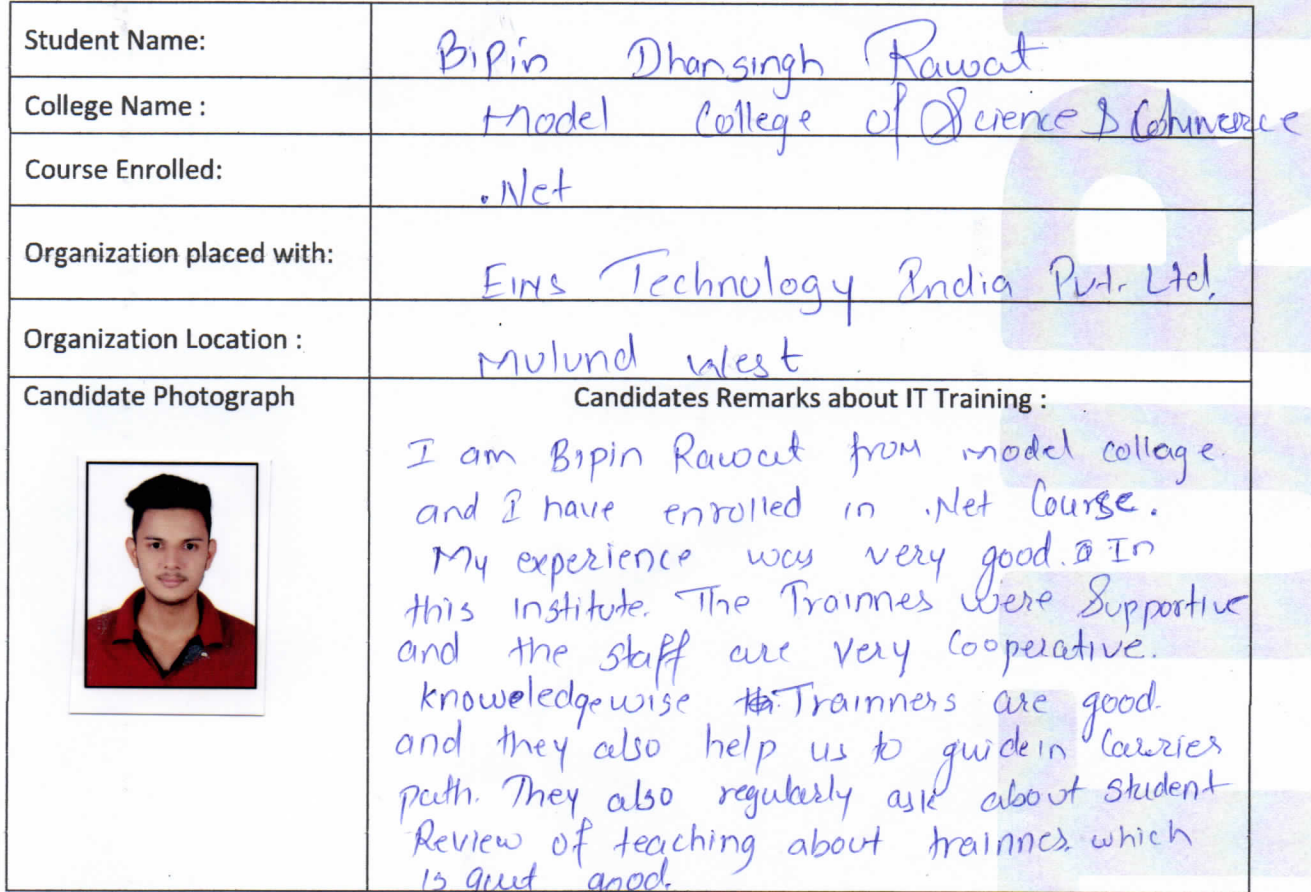 Student Name: Bipin Dhansingh Rawat
College Name : Model College of Science & Commerce
Course Enrolled: .Net
Organization placed with: EINS Technology India Pvt. Ltd.
Organization Location : Mulund West
Candidate Photograph
Candidates Remarks about IT Training :
I am Bipin Rawat from model collage
and I have enrolled in .Net Course.
My experience was very good. In
this institute. The Trainnes were Supportive
and the staff are very Cooperative.
knoweledgewise Trainners are good.
and they also help us to guidein Carries
path. They also regularly ask about student
Review of teaching about trainnes. which
is quet good.